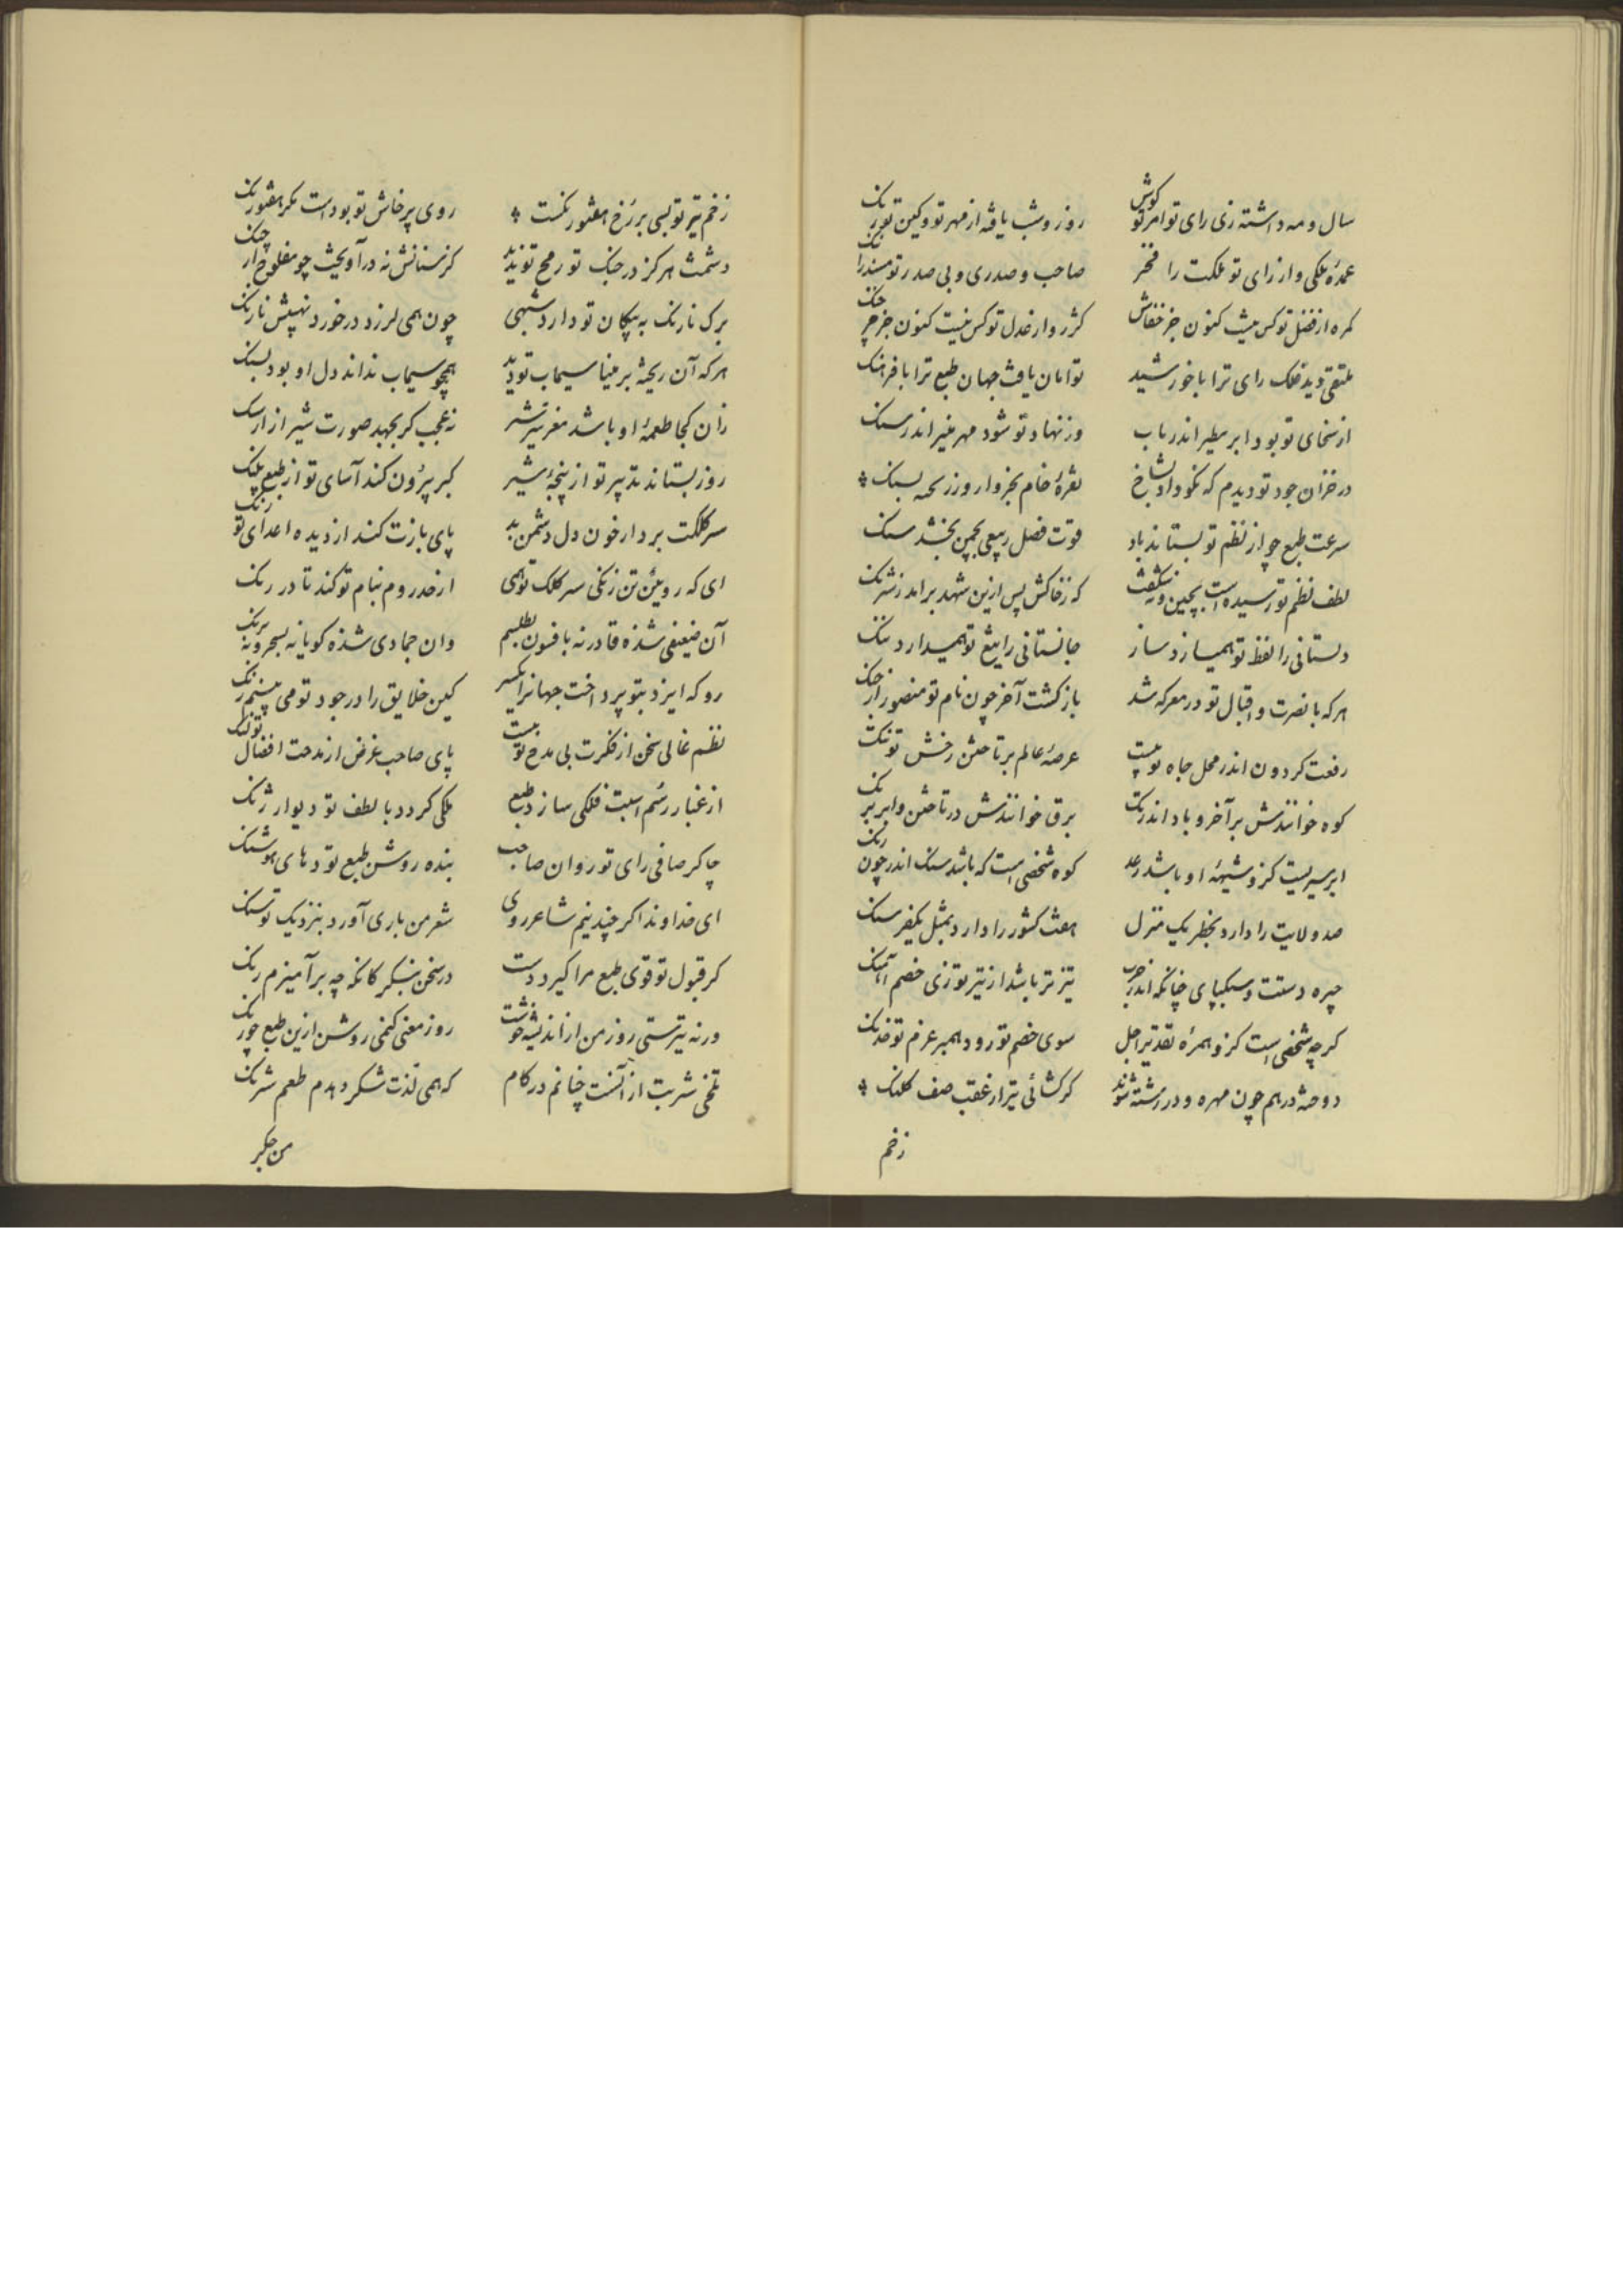 سال و مه داشته زی رای تو امر تو کوش روز و شب یافه از مهر تو و کین تو رنک
عمدۀ ملکی و از رای تو ملکت را فخر صاحب و صدری و بی صدر تو مسند را ننک
کمره از فضل تو کس نیست کنون جز خفاش کژرو از عدل تو کس نیست کنون جز خرچنک
ملتقی دید فلک رای ترا با خورشید توامان یافت جهان طبع ترا با فرهنک
از سخای تو بود ابر مطیر اندر باب وز نهاد تو شود مهر منیر اندر سنک
در خزان جود تو دیدم که نکو داد بشاخ نقرۀ خام بخروار و زر سخته بسنک
سرعت طبع چو از نظم تو بستاند باد قوت فضل ربیعی بچمن بخشد سنک
لطف نظم تو رسیده است بچین و نه شکفت که ز خاکش پس ازین شهد براید ز شرنک
دلستانی را لفظ تو همیسازد ساز جانستانی را تیغ تو همیدارد ننک
هر که با نصرت و اقبال تو در معرکه شد بازکشت آخر چون نام تو منصور از جنک
رفعت کردون اندر محل جاه تو پست عرصۀ عالم بر تاختن رخش تو تنک
کوه خوانندش بر آخر و باد اندر تک برق خوانندش در تاختن و ابر ببر
ابر سیریست کزو شیهۀ او باشد رعد کوه شخصی است که باشد سنک اندر چون رنک
صد ولایت را دارد بخطر یک منزل هفت کشور را دارد بمثل یکفرسنک
چیره دستت و سبکپای چنانکه اندر حرب تیزتر باشد از تیر تو زی خصم آهنک
کرچه شخصی است کزو همرۀ تقدیر اجل سوی خصم تو رود همبر عزم تو خدنک
دوخته درهم چون مهره و در رشته شوند کر کشائی تیر از عقب صف کلنک
زخم
زخم تیر تو بسی بر رخ هفتورنکست روی پرخاش تو بوداست مکر هفتورنک
دشمنت هرکز در جنک تو رمح تو ندید کز سنانش نه درآویخت چو مفلوج از چنک
برک نارنک به پیکان تو دارد شبهی چون همی لرزد در خورد نهیبش نارنک
هر که آن ریخته بر مینا سیماب تو دید همچو سیماب نداند دل او بود بسنک
زان کجا طعمۀ او باشد مغز سر شیر نه عجب کر بجهد صورت شیر از ارسنک
روز بستاند تدبیر تو از پنجۀ شیر کبر بیرون کند آسای تو از طبع پلنک
سر کلکت بردارخون دل دشمن بد پای بازت کند از دیده اعدای تو رنک
ای که روئین تن زنکی سر کلک تو همی از خدر روم بنام تو کند تا در زنک
آن ضعیفی شده قادر نه بافسون بطلسم وان جمادی شده کویا نه بسحر و نه برنک
رو که ایزد بتو پرداخت جهانرا یکسر کین خلایق را در جود تو می بینم زنک
نظم عالی سخن از فکرت بی مدح تو پست پای صاحب غرض از مدحت افضال تو لنک
از غبار ره سم اسبت فلکی سازد طبع ملکی کردد با لطف تو دیوار ژنک
چاکر صافی رای تو روان صاحب بنده روشن طبع تو دهای هوشنک
ای خداوندا کر چند نیم شاعر روی شعر من باری آورد بنزدیک تو سنک
کر قبول تو قوی طبع مرا کیرد دست در سخن بنکر کانکه چه برآمیزم رنک
ورنه تیرستی روز من از اندیشه خوشت روز معنی کنمی روشن ازین طبع چو رنک
تلخی شربت از آنست چنانم در کام که همی لذت شکر دهدم طعم شرنک
من جکر